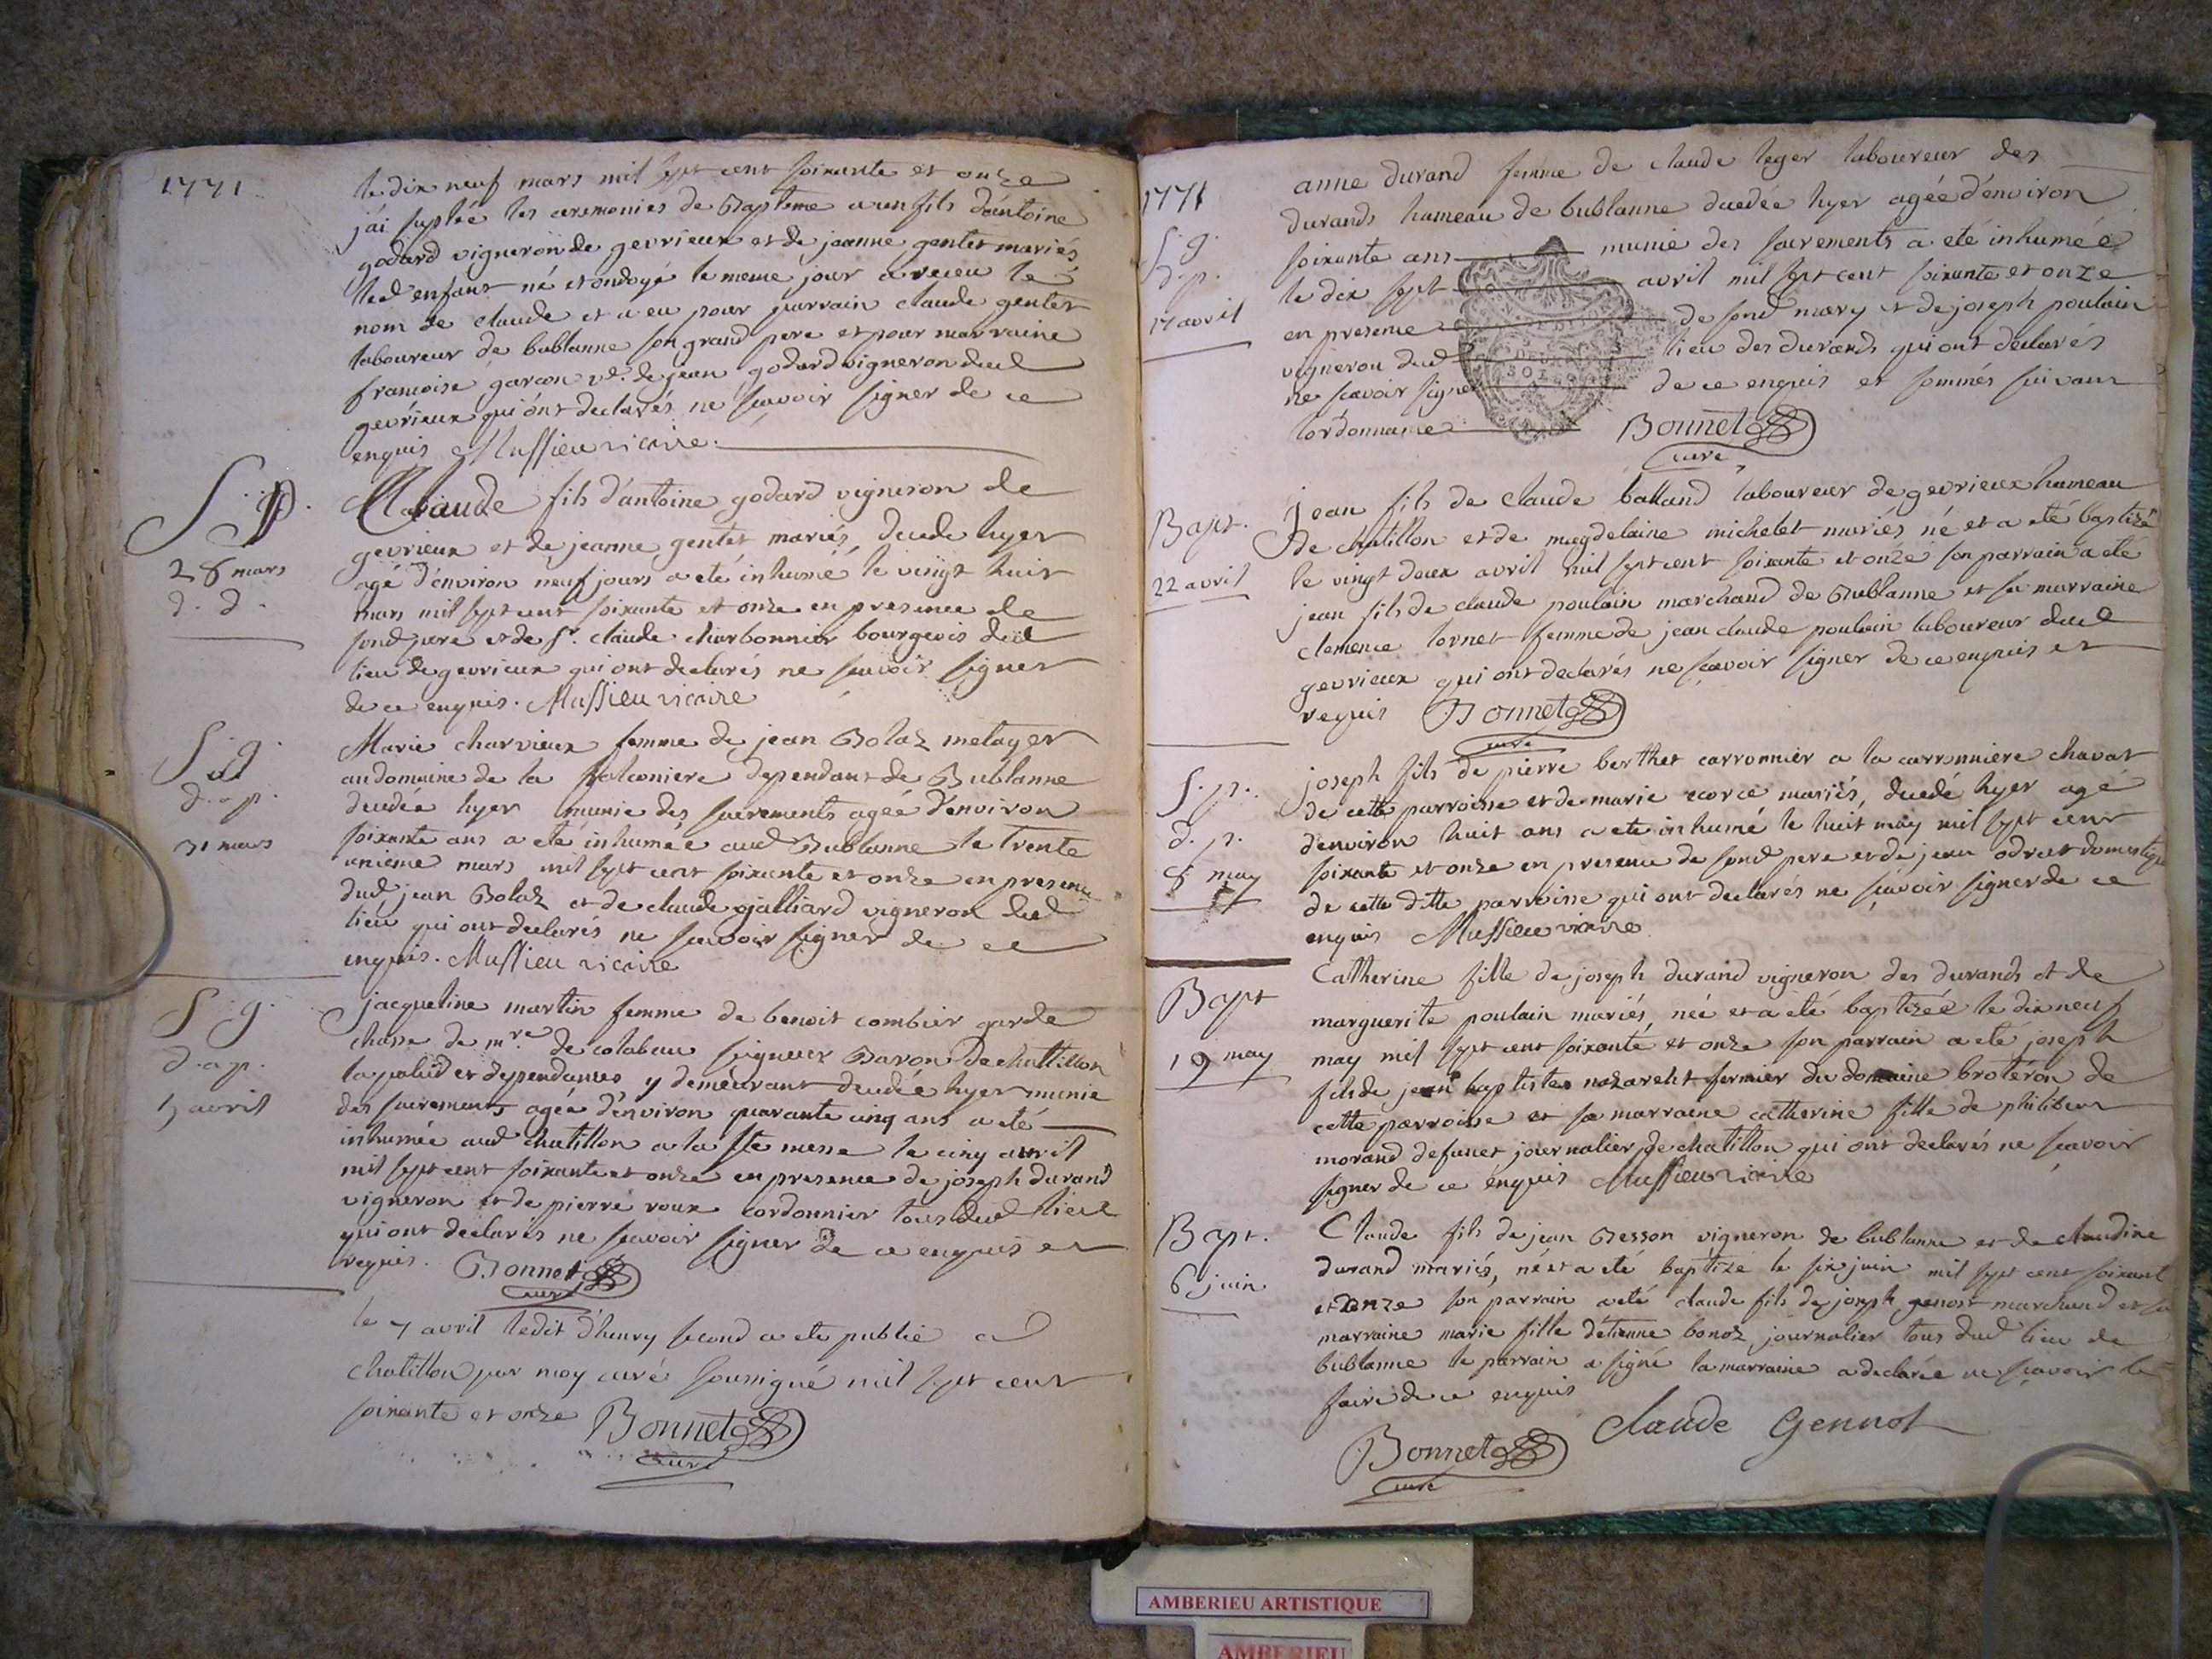 1771
le dix neuf mars mil sept cent soixante et onze
j'ai suplée les ceremonies de Baptême a un fils d'antoine
godard vigneron de gevrieux et de jeanne gentet mariés
led enfant né et ondoyé le meme jour a receu le
nom de claude et a eu pour parrain claude gentet
laboureur de bublanne son grand pere et pour marraine
francoise garcon ve. de jean godard vigneron dud
gevrieux qui ont declarés ne sçavoir signer de ce
enquis Mussieu vicaire.
S. p.
28 mars
d. d.
Claude fils d'antoine godard vigneron de
gevrieux et de jeanne gentet mariés, decede hyer
agé d'environ neuf jours a eté inhumé le vingt huit
mars mil sept cent soixante et onze en presence de
sond pere et de Sr. claude charbonnier bourgeois dud
lieu de gevrieux qui ont declarés ne sçavoir signer
de ce enquis. Mussieu vicaire
S. g.
d. a p.
31 mars
Marie charvieux femme de jean Bolaz metayer
au domaine de la falconiere dependant de Bublanne
decedée hyer munie des sacrements agée d'environ
soixante ans a eté inhumée aud Bublanne le trente
unieme mars mil sept cent soixante et onze en presence
dud jean Bolaz et de claude galliard vigneron dud
lieu qui ont declarés ne sçavoir signer de ce
enquis. Mussieu vicaire
S g.
d. a p.
5 avril
jacqueline martin femme de benoit combier garde
chasse de mre de colabeau seigneur Baron de chatillon
la palud et dependances y demeurant decedée hyer munie
des sacrements agée d'environ quarante cinq ans a eté
inhumée aud chatillon a la Ste messe le cinq avril
mil sept cent soixante et onze en presence de joseph durand
vigneron et de pierre roux cordonnier tous dud lieu
qui ont declarés ne sçavoir signer de ce enquis et
requis. Bonnet
curé
le 7 avril ledit d'henry second a ete publié a
chatillon par moy curé soussigné mil sept cent
soixante et onze Bonnet
curé
1771
S. g.
d. p.
17 avril
anne durand femme de claude leger laboureur des
durands hameau de bublanne decedée hyer agée d'environ
soixante ans munie des sacrements a eté inhumée
le dix sept avril mil sept cent soixante et onze
en presence de sond mary et de joseph poulain
vigneron dud lieu des durands qui ont declarés
ne sçavoir signer de ce enquis et sommés suivant
l'ordonnance Bonnet
curé
Bapt.
22 avril
jean fils de claude balland laboureur de gevrieux hameau
de chatillon et de magdelaine michelet mariés né et a eté baptizé
le vingt deux avril mil sept cent soixante et onze son parrain a eté
jean fils de claude poulain marchand de Bublanne et sa marraine
clemence tornet femme de jean claude poulain laboureur dud
gevrieux qui ont declarés ne sçavoir signer de ce enquis et
requis Bonnet
curé
S. p.
d. p.
8 may
joseph fils de pierre berthet carronnier a la carronniere chavat
de cette parroisse et de marie ecorce mariés, decedé hyer agé
d'environ huit ans a eté inhumé le huit may mil sept cent
soixante et onze en presence de sond pere et de jean odret domestique
de cette ditte parroisse qui ont declarés ne sçavoir signer de ce
enquis Mussieu vicaire
Bapt
19 may
Catherine fille de joseph durand vigneron des durands et de
marguerite poulain mariés, née et a eté baptizée le dix neuf
may mil sept cent soixante et onze son parrain a eté joseph
fils de jean baptiste fermier du domaine broteron de
cette parroisse et sa marraine catherine fille de philibert
morand defunct journalier de chatillon qui ont declarés ne sçavoir
signer de ce enquis Mussieu vicaire
Bapt.
6 juin
Claude fils de jean Besson vigneron de bublanne et de claudine
durand mariés, né et a eté baptizé le six juin mil sept cent soixant
et onze son parrain a eté claude fils de joseph genost marchand et sa
marraine marie fille d'etienne bonoz journalier tous dud lieu de
bublanne le parrain a signé la marraine a declarée ne sçavoir le
faire de ce enquis
Claude Gennot
Bonnet
curé
AMBERIEU ARTISTIQUE
AMBERIEU